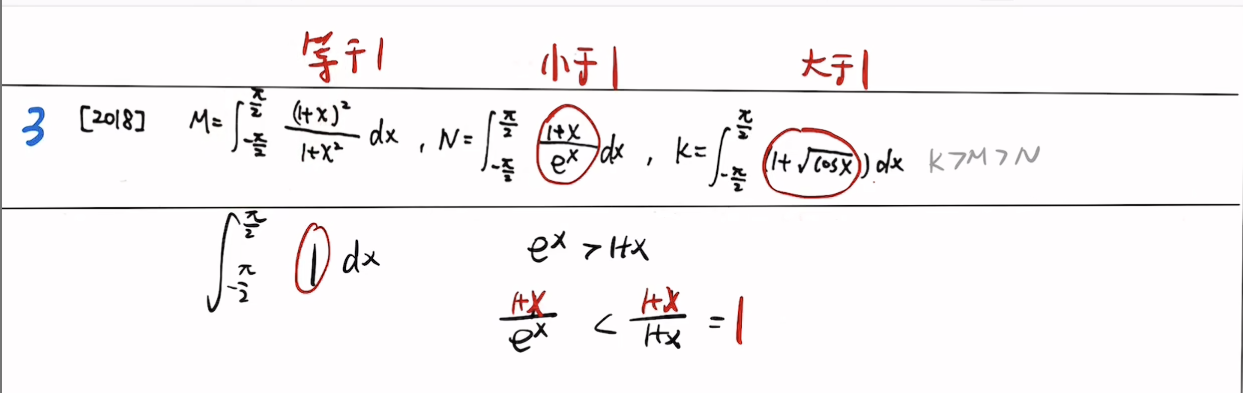 等于1 小于1 大于1
3 [2018] M=∫_{-π/2}^{π/2} (1+x)²/(1+x²) dx , N=∫_{-π/2}^{π/2} (1+x)/e^x dx , K=∫_{-π/2}^{π/2} (1+√cosx) dx K>M>N
∫_{-π/2}^{π/2} 1 dx e^x >1+x
(1+x)/e^x < (1+x)/(1+x) = 1